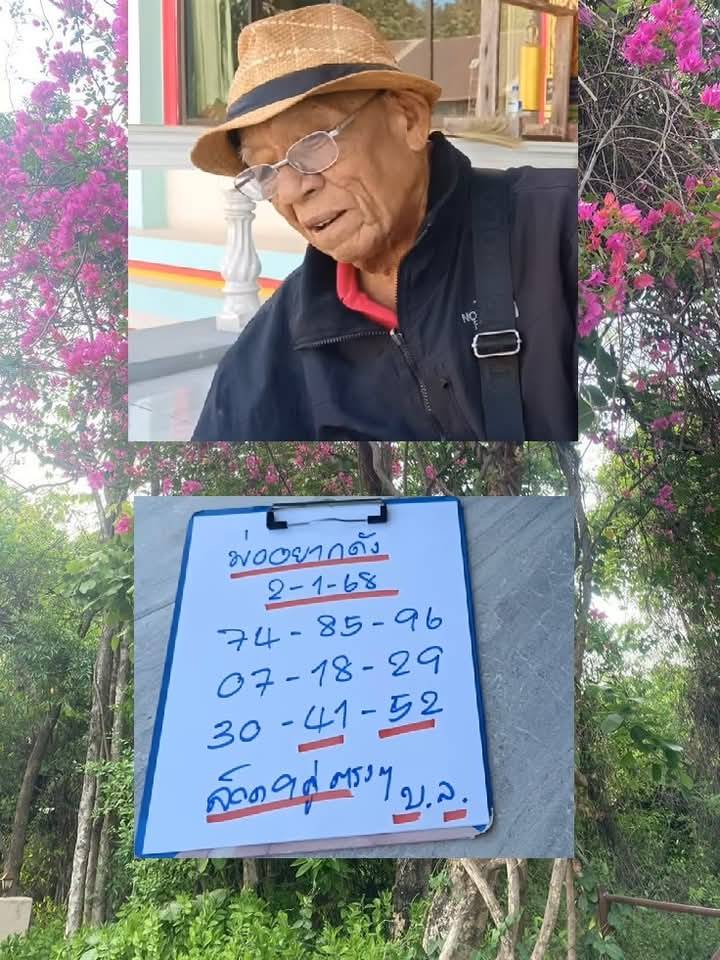 NO
ม่ออยากดัง
2-1-68
74-85-96
07-18-29
30-41-52
คู่ตรงๆ
บ.ล.